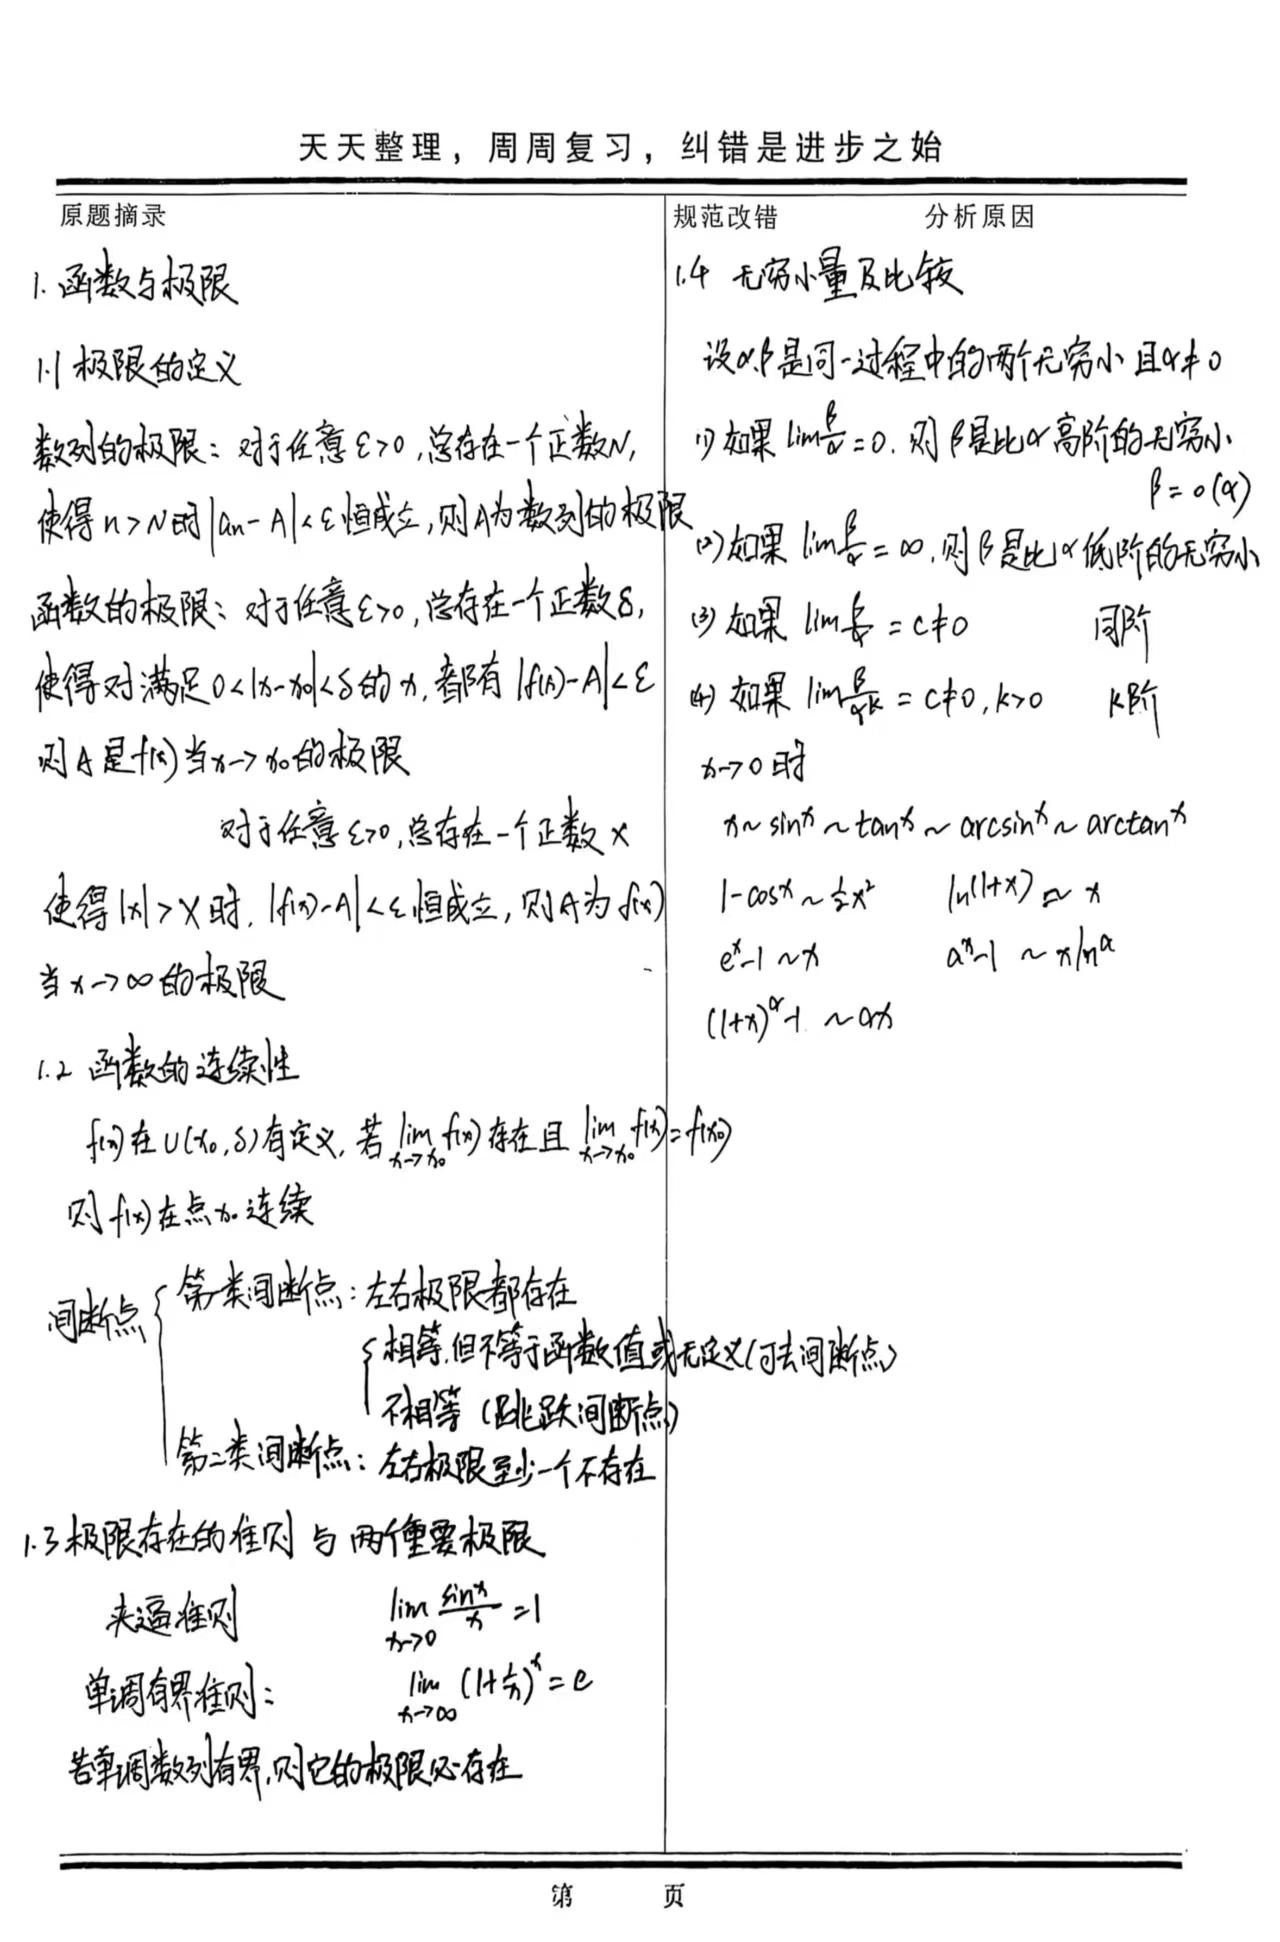 天天整理，周周复习，纠错是进步之始
原题摘录
1. 函数与极限
1.1 极限的定义
数列的极限：对于任意ε>0,总存在一个正数N,
使得n>N时|an-A|<ε恒成立,则A为数列的极限
函数的极限：对于任意ε>0,总存在一个正数δ,
使得对满足0<|x-x0|<δ的x,都有|f(x)-A|<ε
则A是f(x)当x→x0的极限
对于任意ε>0,总存在一个正数X
使得|x|>X时,|f(x)-A|<ε恒成立,则A为f(x)
当x→∞的极限
1.2 函数的连续性
f(x)在U(x0,δ)有定义,若lim x→x0 f(x)存在且lim x→x0 f(x)=f(x0)
则f(x)在点x0连续
间断点
第一类间断点：左右极限都存在
相等,但不等于函数值或无定义(可去间断点)
不相等(跳跃间断点)
第二类间断点：左右极限至少一个不存在
1.3 极限存在的准则与两个重要极限
夹逼准则 lim x→0 sinx/x =1
单调有界准则： lim x→∞ (1+1/x)^x = e
若单调数列有界,则它的极限必存在
规范改错 分析原因
1.4 无穷小量及比较
设α,β是同一过程中的两个无穷小且α≠0
(1)如果lim β/α=0,则β是比α高阶的无穷小
β=o(α)
(2)如果lim β/α=∞,则β是比α低阶的无穷小
(3)如果lim β/α=c≠0 同阶
(4)如果lim β/α^k=c≠0,k>0 k阶
x→0时
x~sinx~tanx~arcsinx~arctanx
1-cosx~1/2x² ln(1+x)~x
e^x-1~x a^x-1~xlna
(1+x)^α-1~αx
第 页